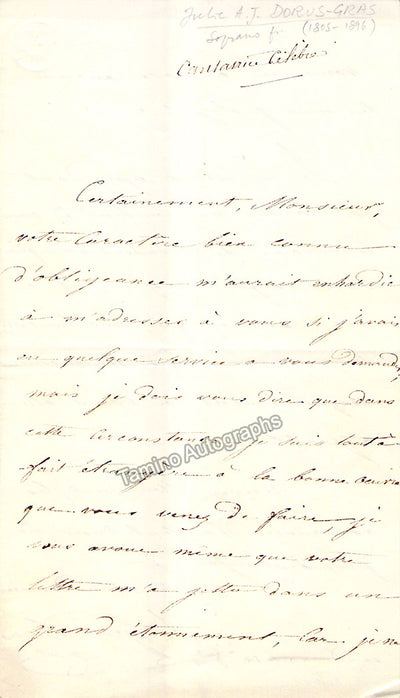 Julie A.J. DORUS-GRAS
Soprano fr. (1805-1896)
Cantatrice Célèbre
Certainement, Monsieur,
votre caractère bien connu
d'obligeance m'aurait enhardie
à m'adresser à vous si j'avais
eu quelque service a vous demander,
mais je dois vous dire que dans
cette circonstance je suis tout à
fait étrangère à la bonne œuvre
que vous venez de faire, je
vous avoue même que votre
lettre m'a jettée dans un
grand étonnement, car je ne
Tamino Autographs